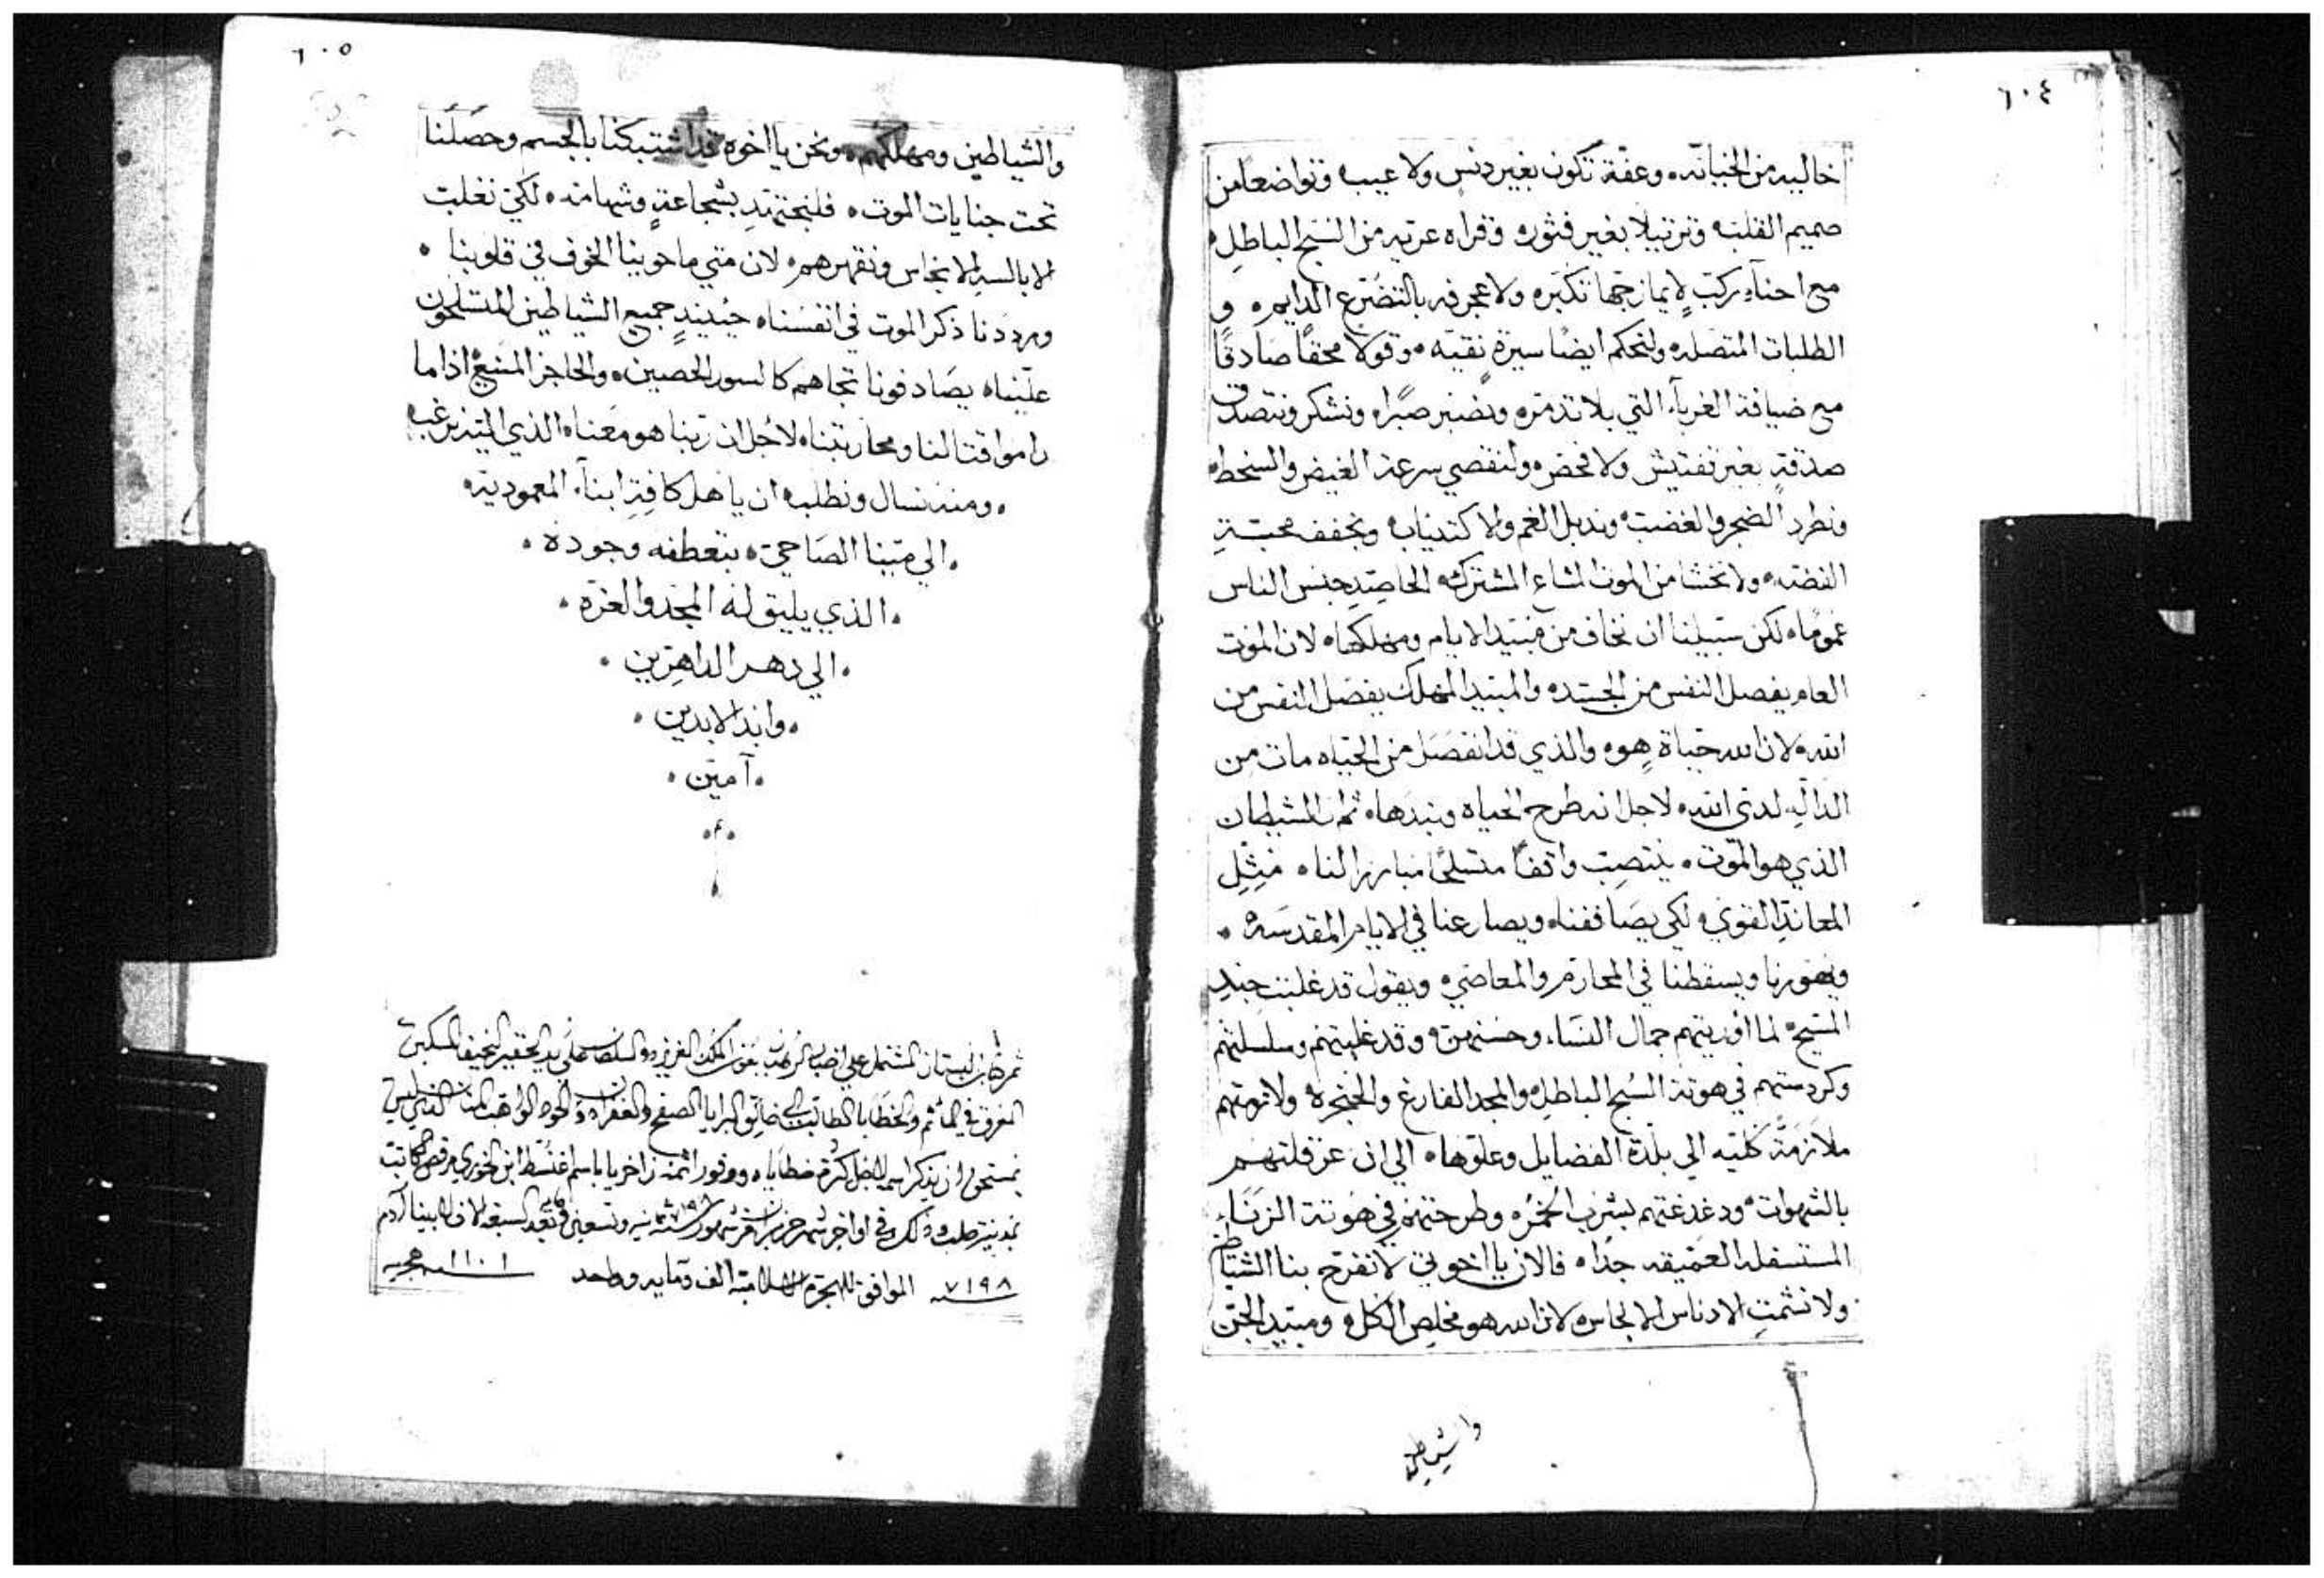 ٦٠٤
خاليه من الخيانه، وعفة تكون بغير دنس ولا عيب، وتواضعا من
صميم القلب، وترتيلا بغير فتور، وقراه عريه من السبح الباطل،
مع احناء ركب لا يمازجها تكبر، ولا عجرفه بالتضرع الدايم، و
الطلبات المتصله، ولنحكم ايضا سيرة نقيه، وقولا محقا صادقا
مع ضيافة الغرباء التي بلا تذمر، ونصبر صبرا، ونشكر ونتصدق
صدقة بغير تفتيش ولا فحص، ولنقصي سرعة الغيض والسخط،
ونطرد الضجر والغضب، ونذبل الغم والاكتئاب، ونجفف محبة
الفضه، ولا نخشا من الموت المشاع المشترك، الحاصد جنس الناس
عموما، لكن سبيلنا ان نخاف من مبيد الانام ومهلكها، لان الموت
العام يفصل النفس من الجسد، والمبيد المهلك يفصل النفس من
الله، لان الله حياة هو، والذي قد انفصل من الحياه مات من
الداله لدى الله، لاجل انه طرح الحياه ونبذها، ثم ان الشيطان
الذي هو الموت، ينتصب واقفا متسلحا مبارزا لنا، مثل
المعاند القوي، لكي يصاففنا، ويصارعنا في الايام المقدسه،
ويهورنا ويسقطنا في المحارم والمعاصي، ويقول قد غلبت جند
المسيح، لما اوريتهم جمال النساء وحسنهن، وقد غلبتهم وسلسلتهم
وكردستهم في هوتة السبح الباطل، والمجد الفارغ والحنجره، ولا تركتهم
ملازمة كليه الي بلدة الفضايل وعلوها، الي ان عرقلتهم
بالشهوات، ودغدغتهم بشرب الخمر، وطرحتهم في هوتة الزناء
المستسفله العميقه جدا، فالان يا اخوتي لا نفرح بنا الشياطين
ولا نشمت الادناس الانجاس، لان الله هو مخلص الكل، ومبيد الجن
والشياطين
٦٠٥
والشياطين ومهلكهم، ونحن يا اخوه قد اشتبكنا بالجسم وحصلنا
تحت جنايات الموت، فلنجتهد بشجاعة وشهامه، لكي نغلب
الابالسه الانجاس ونقهرهم، لان متي ما حوينا الخوف في قلوبنا،
ورددنا ذكر الموت في انفسنا، حينيذ جميع الشياطين المتسلحون
علينا، يصادفونا تجاههم كالسور الحصين، والحاجز المنيع اذا ما
راموا قتالنا ومحاربتنا، لاجل ان ربنا هو معنا، الذي اليه نرغب
ومنه نسال ونطلب، ان ياهل كافة ابناء المعموديه،
الي مينا الصاحي، بتعطفه وجوده،
الذي يليق له المجد والعزه،
الي دهر الداهرين،
وابد الابدين،
آمين،
تم هذا البستان المشتمل علي اخبار الرهبان بعون الملك العزيز ذو السلطان علي يد الحقير النحيف المسكين
المغرق في المآثم والخطايا الطالب الي خالق البرايا الصفح والغفران ذو الجود الواهب المنان الذي ليس
بمستحق ان يذكر اسمه لاجل كثرة خطاياه، ووفور اثمه باسم ابن الخوري مرقص الكاتب
بمدينة حلب وذلك في اواخر شهر حزيران من شهور سنة ٧١٩٨ ثمانيه وتسعين ومايه بعد السبعه الاف لابينا آدم
سنة ٧١٩٨ الموافق للهجرة الاسلاميه الف ومايه وواحد سنة ١١٠١ هجريه